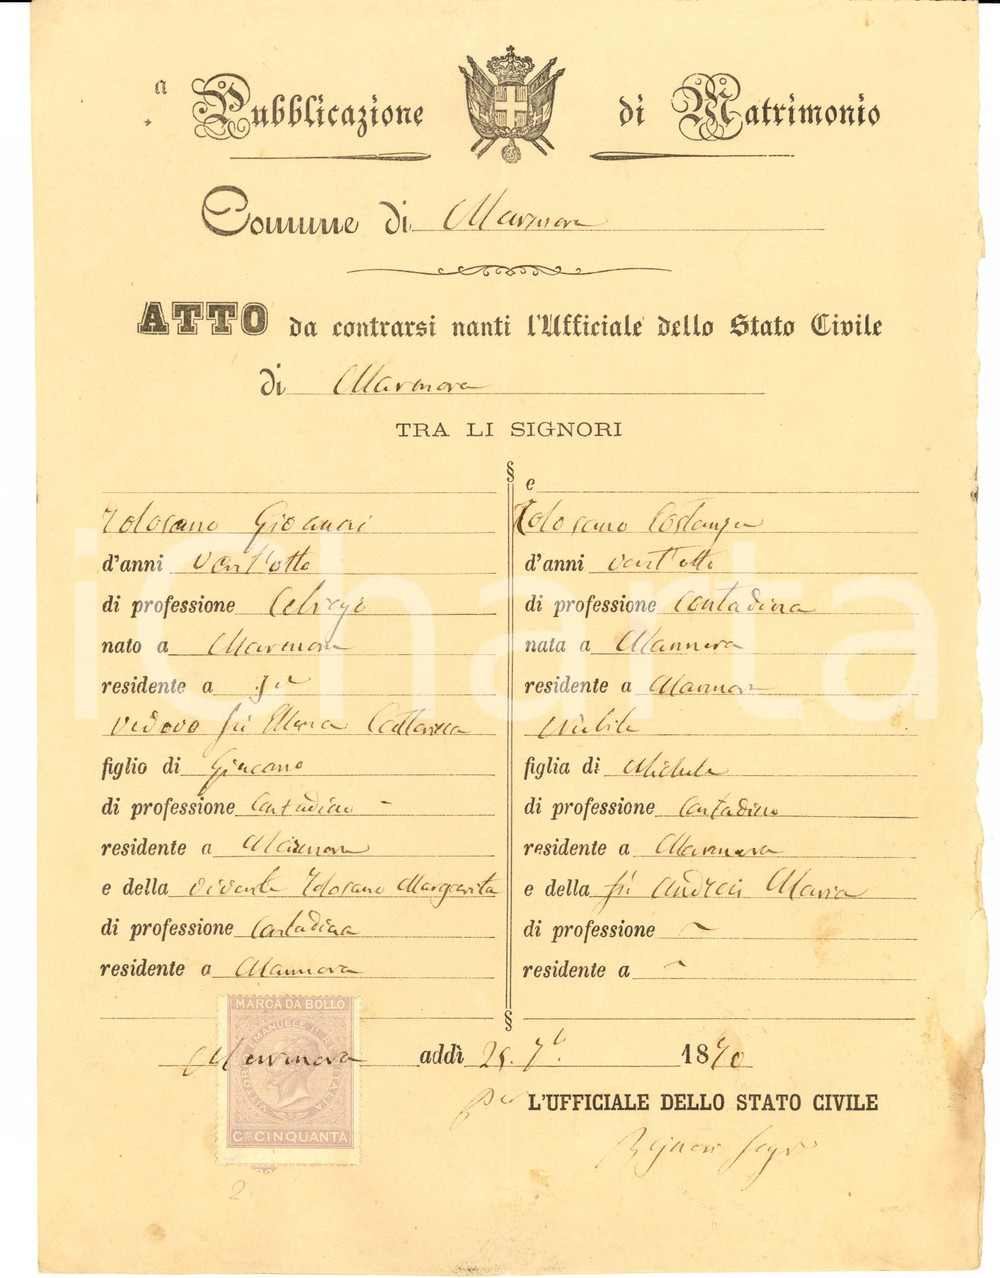 a
Pubblicazione di Matrimonio
Comune di Marmora
ATTO da contrarsi nanti l'Ufficiale dello Stato Civile
di Marmora
TRA LI SIGNORI
§ e
Tolosano Gioanni
d'anni vent'otto
di professione
nato a Marmora
residente a Ivi
vedovo fu Maria Catterina
figlio di Giacomo
di professione Contadino -
residente a Marmora
e della vivente Tolosano Margarita
di professione Contadina
residente a Marmora
Tolosano Costanza
d'anni vent'otto
di professione Contadina
nata a Marmora
residente a Marmora
Nubile
figlia di Michele
di professione Contadino
residente a Marmora
e della fu Andreis Maria
di professione ~
residente a ~
§
Marmora addì 25. 7b. 1870
per L'UFFICIALE DELLO STATO CIVILE
Segr
MARCA DA BOLLO
VITTORIO EMANUELE II RE D'ITALIA
Cmi CINQUANTA
2
iCharta